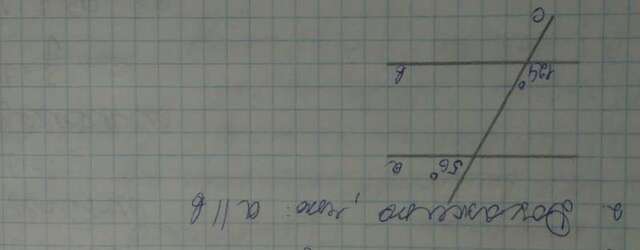 2. Докажите, что: a || b
56°
a
124°
b
c